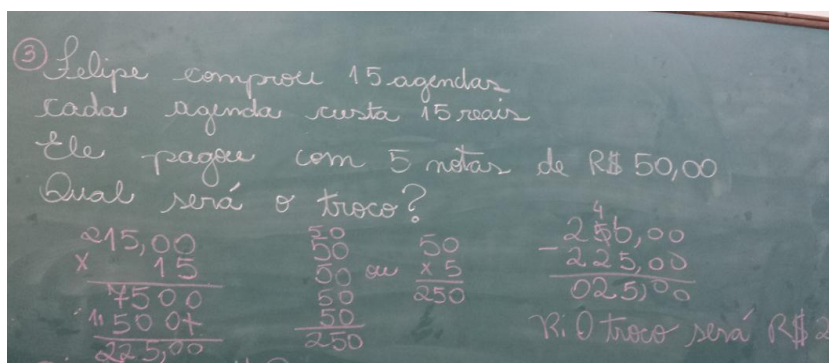 ③ Felipe comprou 15 agendas
cada agenda custa 15 reais
Ele pagou com 5 notas de R$ 50,00
Qual será o troco?
215,00
x 15
7500
1500+
225,00
50
50
50
50
50
250
ou
50
x 5
250
4
250,00
- 225,00
025,00
R: O troco será R$ 2